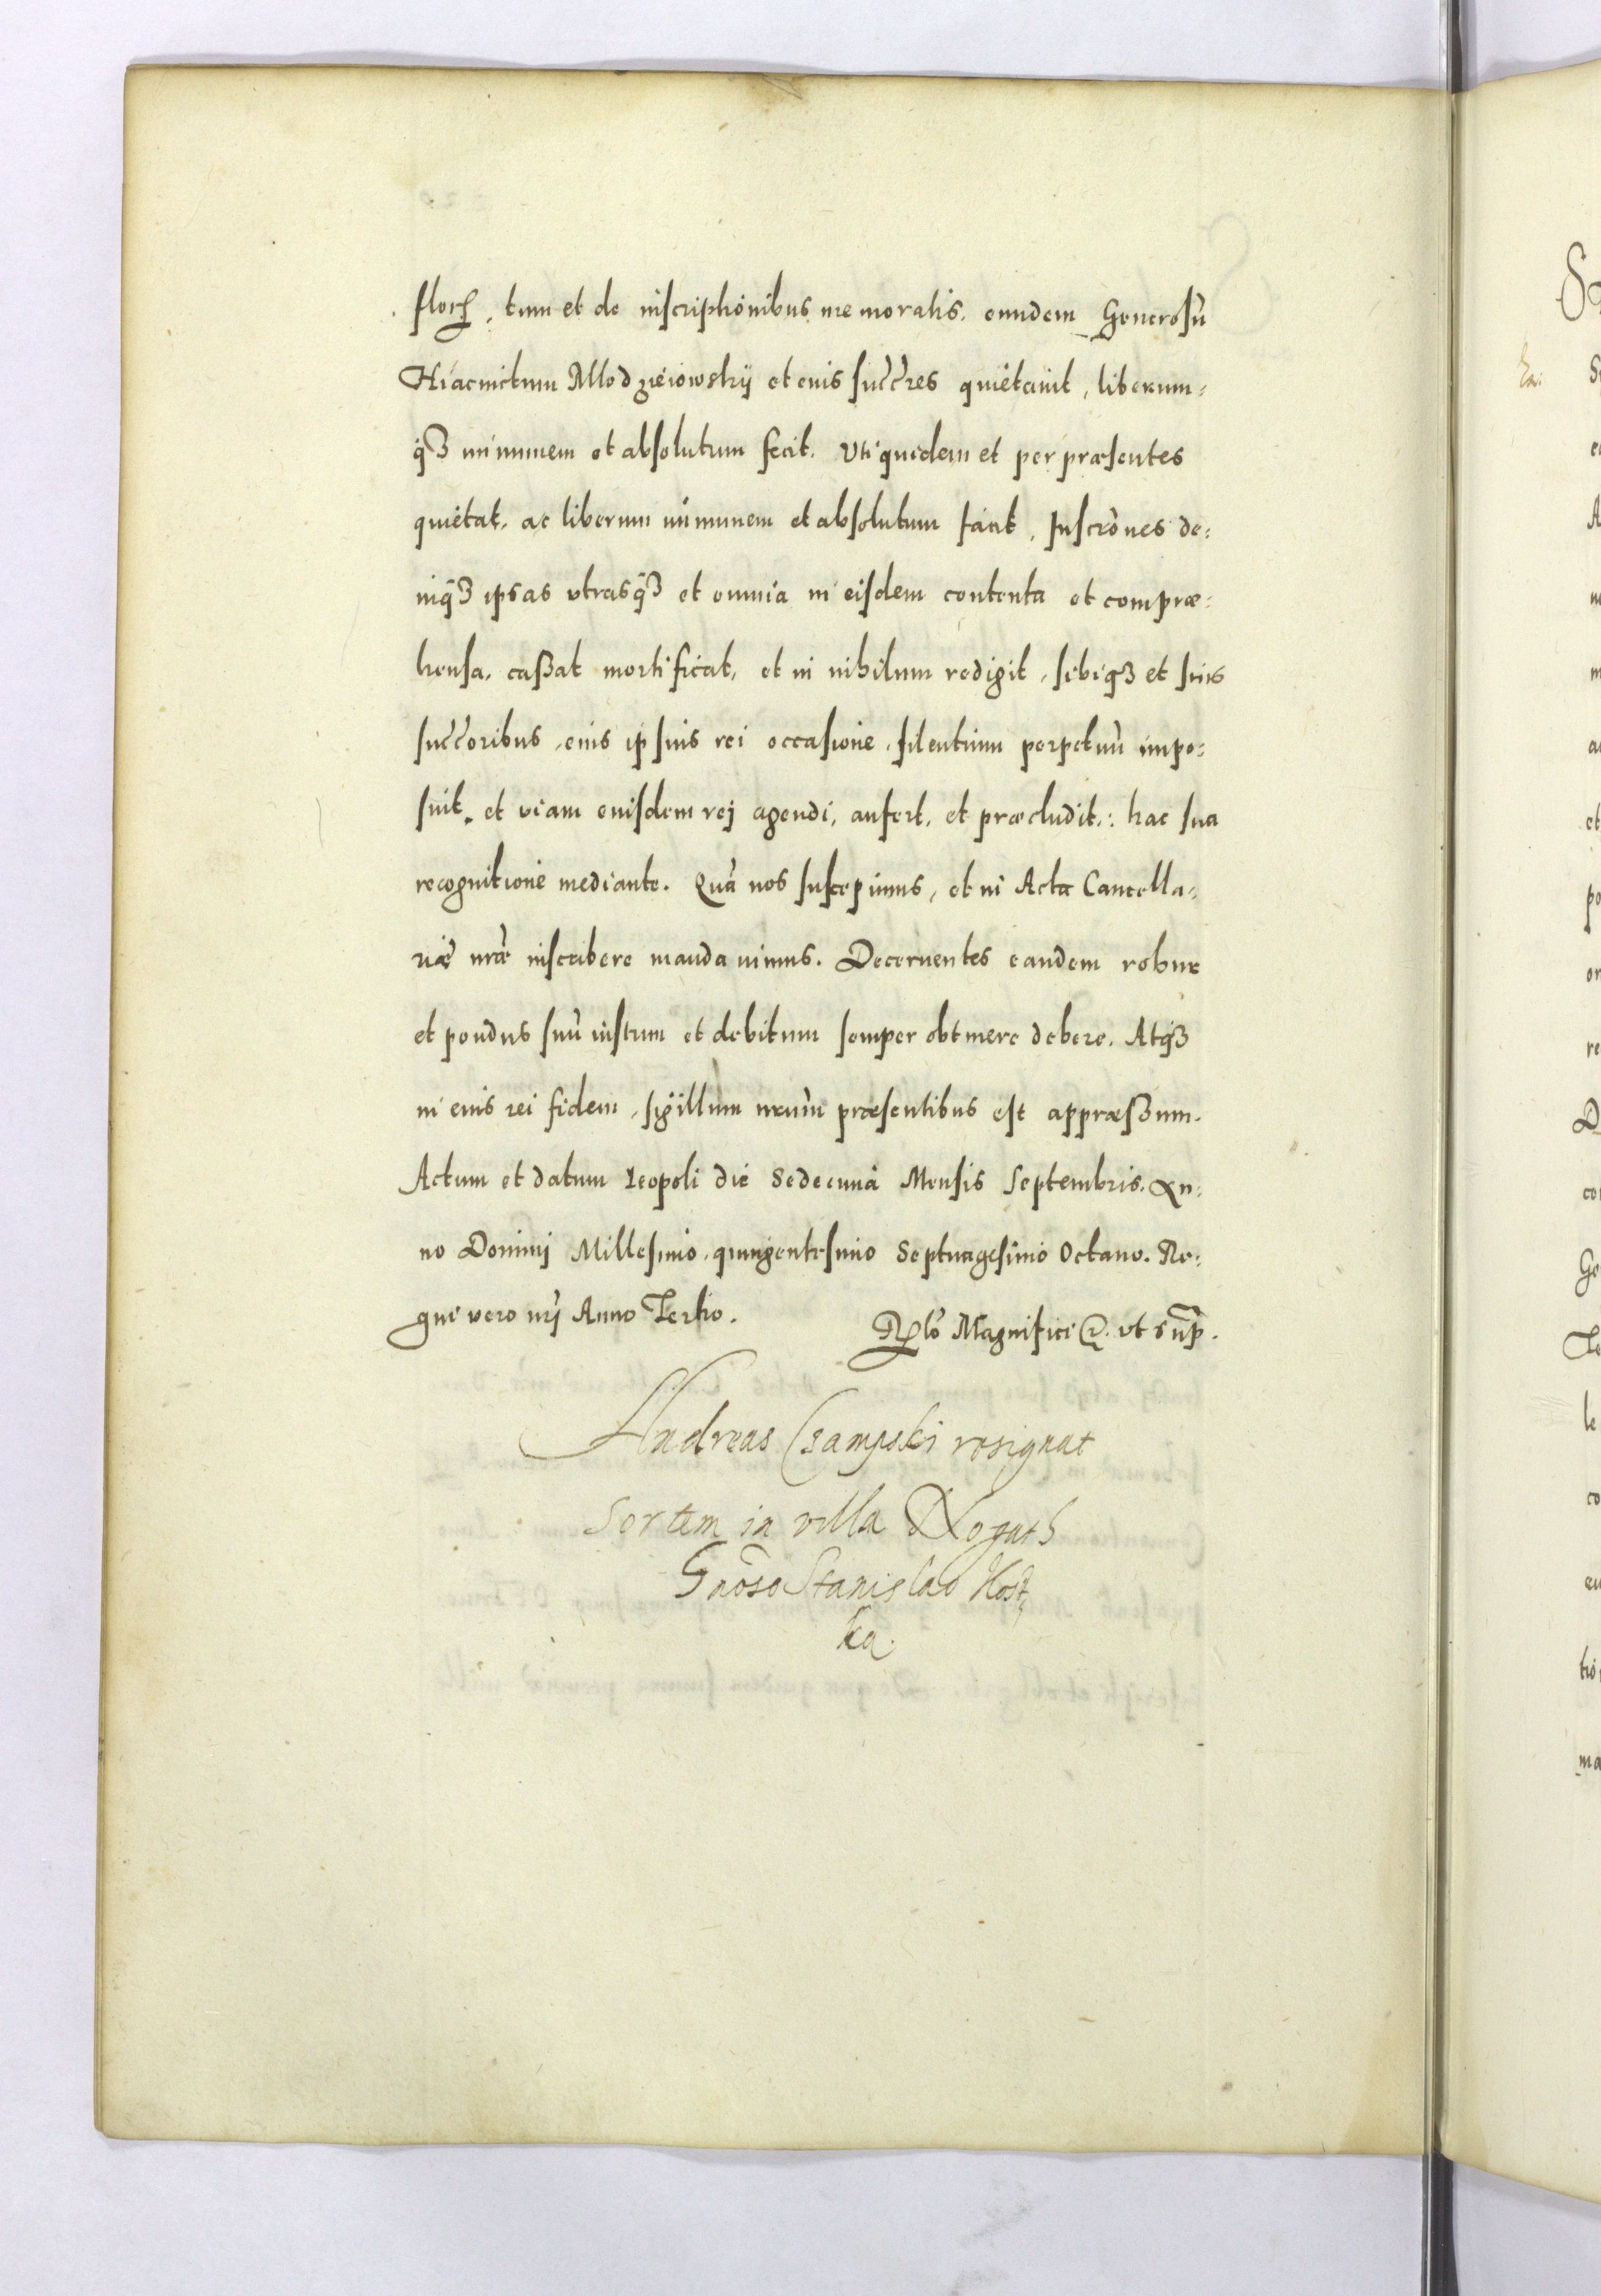 flor., tum et de inscriptionibus memoratis, eundem Generosũ
Hiacinctum Mlodzieiowskij et eius succres quietauit, liberum-
q3 immunem et absolutum fecit. Vti quidem et per præsentes
quietat, ac liberum immunem et absolutum facit, Inscrones de-
niq3 ipsas vtrasq3 et omnia in eisdem contenta et compræ-
hensa, cassat mortificat, et in nihilum redigit, sibiq3 et suis
succoribus, eius ipsius rei occasione, silentium perpetuũ impo-
suit, et viam eiusdem rej agendi, aufert, et præcludit,: hac sua
recognitione mediante. Quã nos suscepimus, et in Acta Cancella-
riæ nræ inscribere mandauimus. Decernentes eandem robur
et pondus suũ iustum et debitum semper obtinere debere. Atq3
in eius rei fidem, sigillum nrum præsentibus est appræssum.
Actum et datum Leopoli die Sedecima Mensis Septembris. An-
no Dominj Millesimo, quingentesimo Septuagesimo Octauo. Re-
gni vero nrj Anno Tertio.
Rlo Magnifici &. vt sup.
Andreas Czampski resignat
sortem in villa Nogath
Gnoso Stanislao Kost
ka.